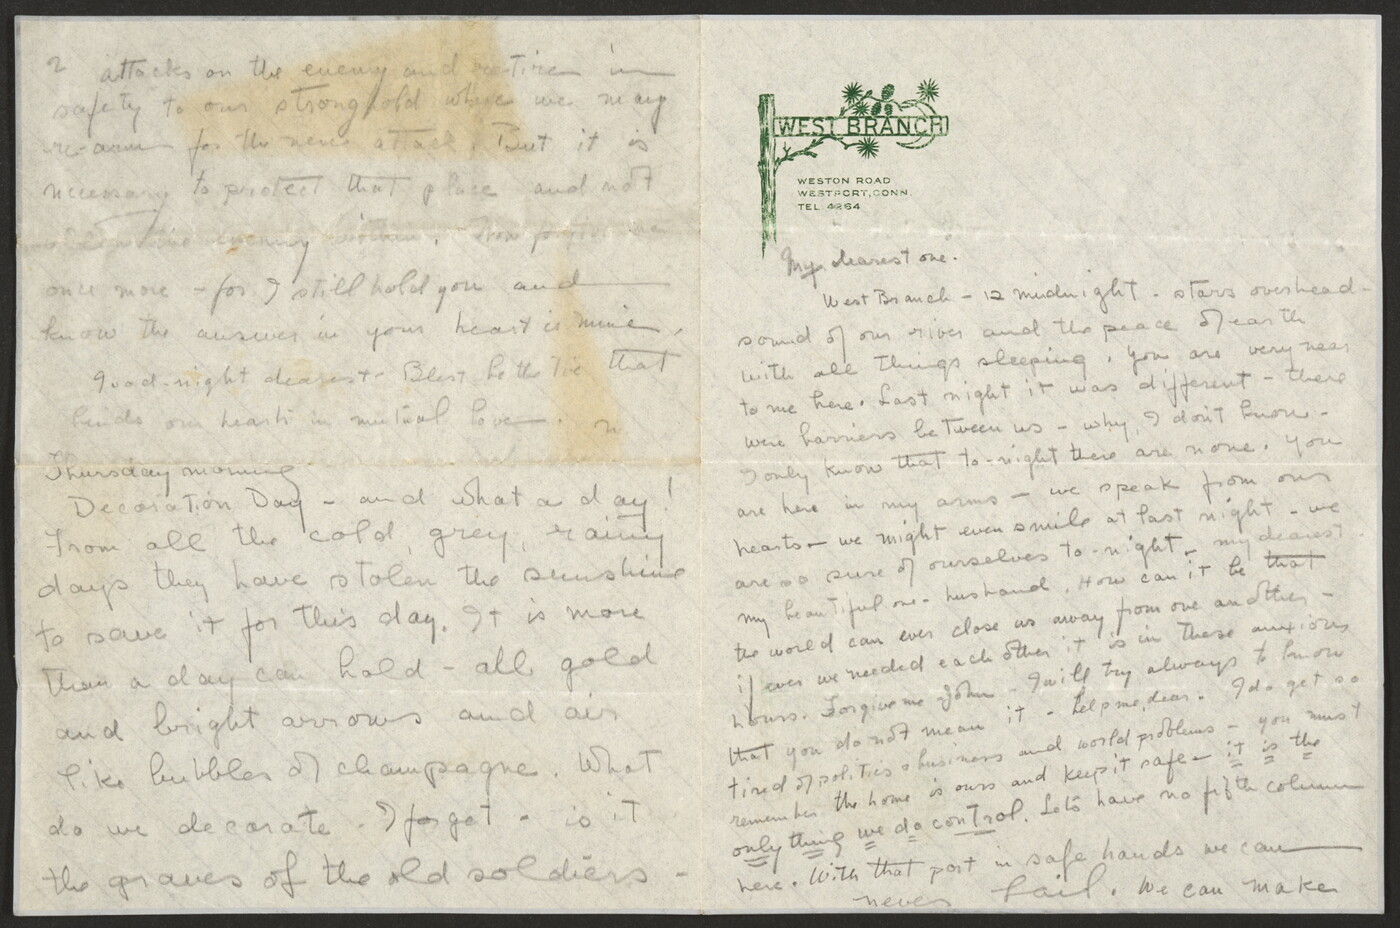 WEST BRANCH
WESTON ROAD
WESTPORT, CONN.
TEL 4264
My dearest one.
West Branch - 12 midnight - stars overhead -
sound of our river and the peace of earth
with all things sleeping. You are very near
to me here. Last night it was different - there
were barriers between us - why, I don't know -
I only know that to-night there are none. You
are here in my arms - we speak from our
hearts - we might even smile at last night - we
are so sure of ourselves to-night - my dearest
my beautiful one - husband. How can it be that
the world can ever close us away from one another -
if ever we needed each other it is in these anxious
hours. Forgive me John - I will try always to know
that you do not mean it - help me, dear. I do get so
tired of politics & business and world problems - you must
remember the home is ours and keep it safe - it is the
only thing we do control. Lets have no fifth column
here. With that port in safe hands we can
never fail. We can make
2 attacks on the enemy and retire in
safety to our stronghold where we may
re-arm for the next attack. But it is
necessary to protect that place and not
enemy within.
once more - for I still hold you and
know the answer in your heart is mine.
Good-night dearest - Blest be the tie that
binds our hearts in mutual love. n
Thursday morning
Decoration Day - and what a day!
From all the cold, grey, rainy
days they have stolen the sunshine
to save it for this day. It is more
than a day can hold - all gold
and bright arrows and air
like bubbles of champagne. What
do we decorate - I forget - is it
the graves of the old soldiers -